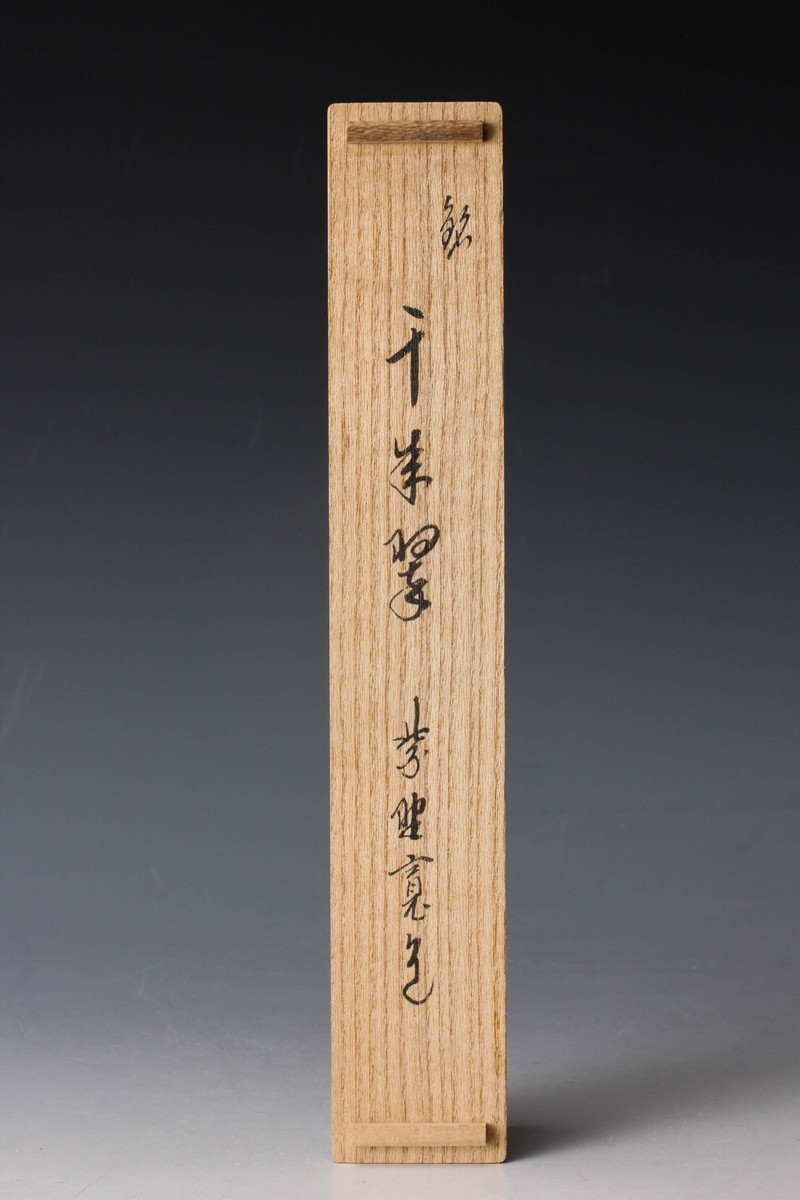 銘
千年翠 紫野寛道